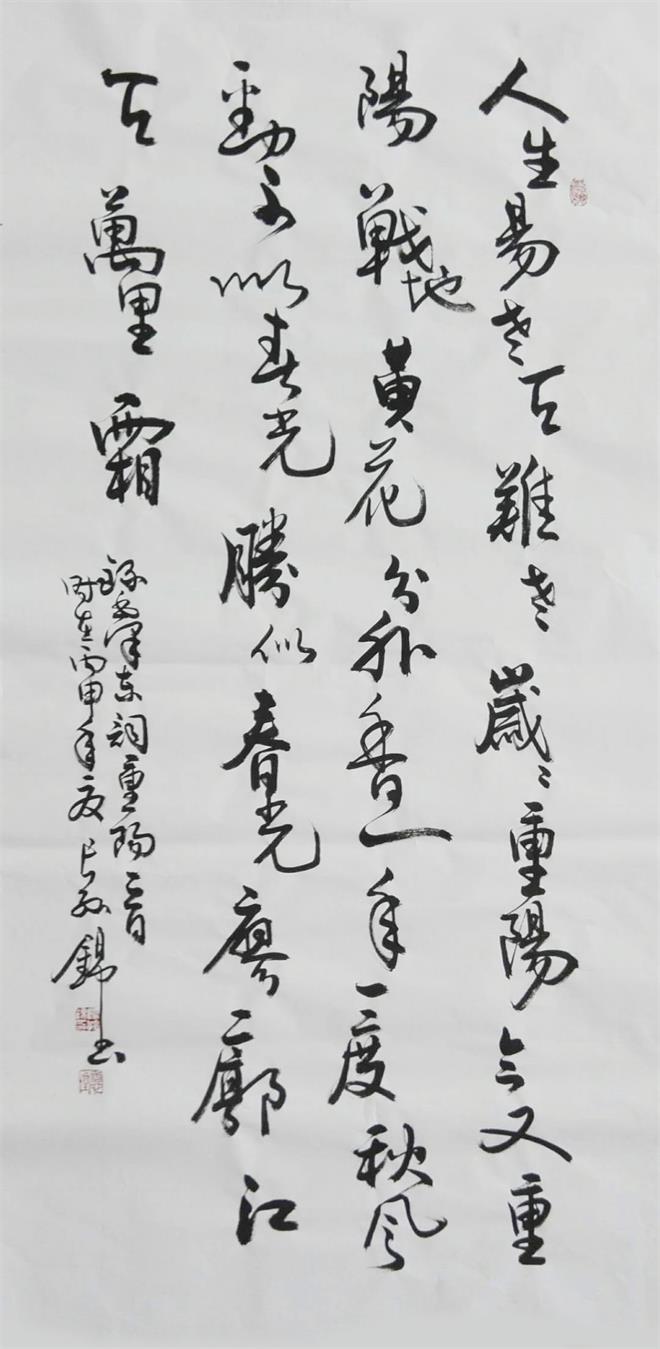 人生易老天難老歲々重陽今又重
陽戰地黃花分外香一年一度秋風
勁不似春光勝似春光廖々廓江
天萬里霜
錄毛澤東詞重陽一首
时在丙申年夏长孙錦书